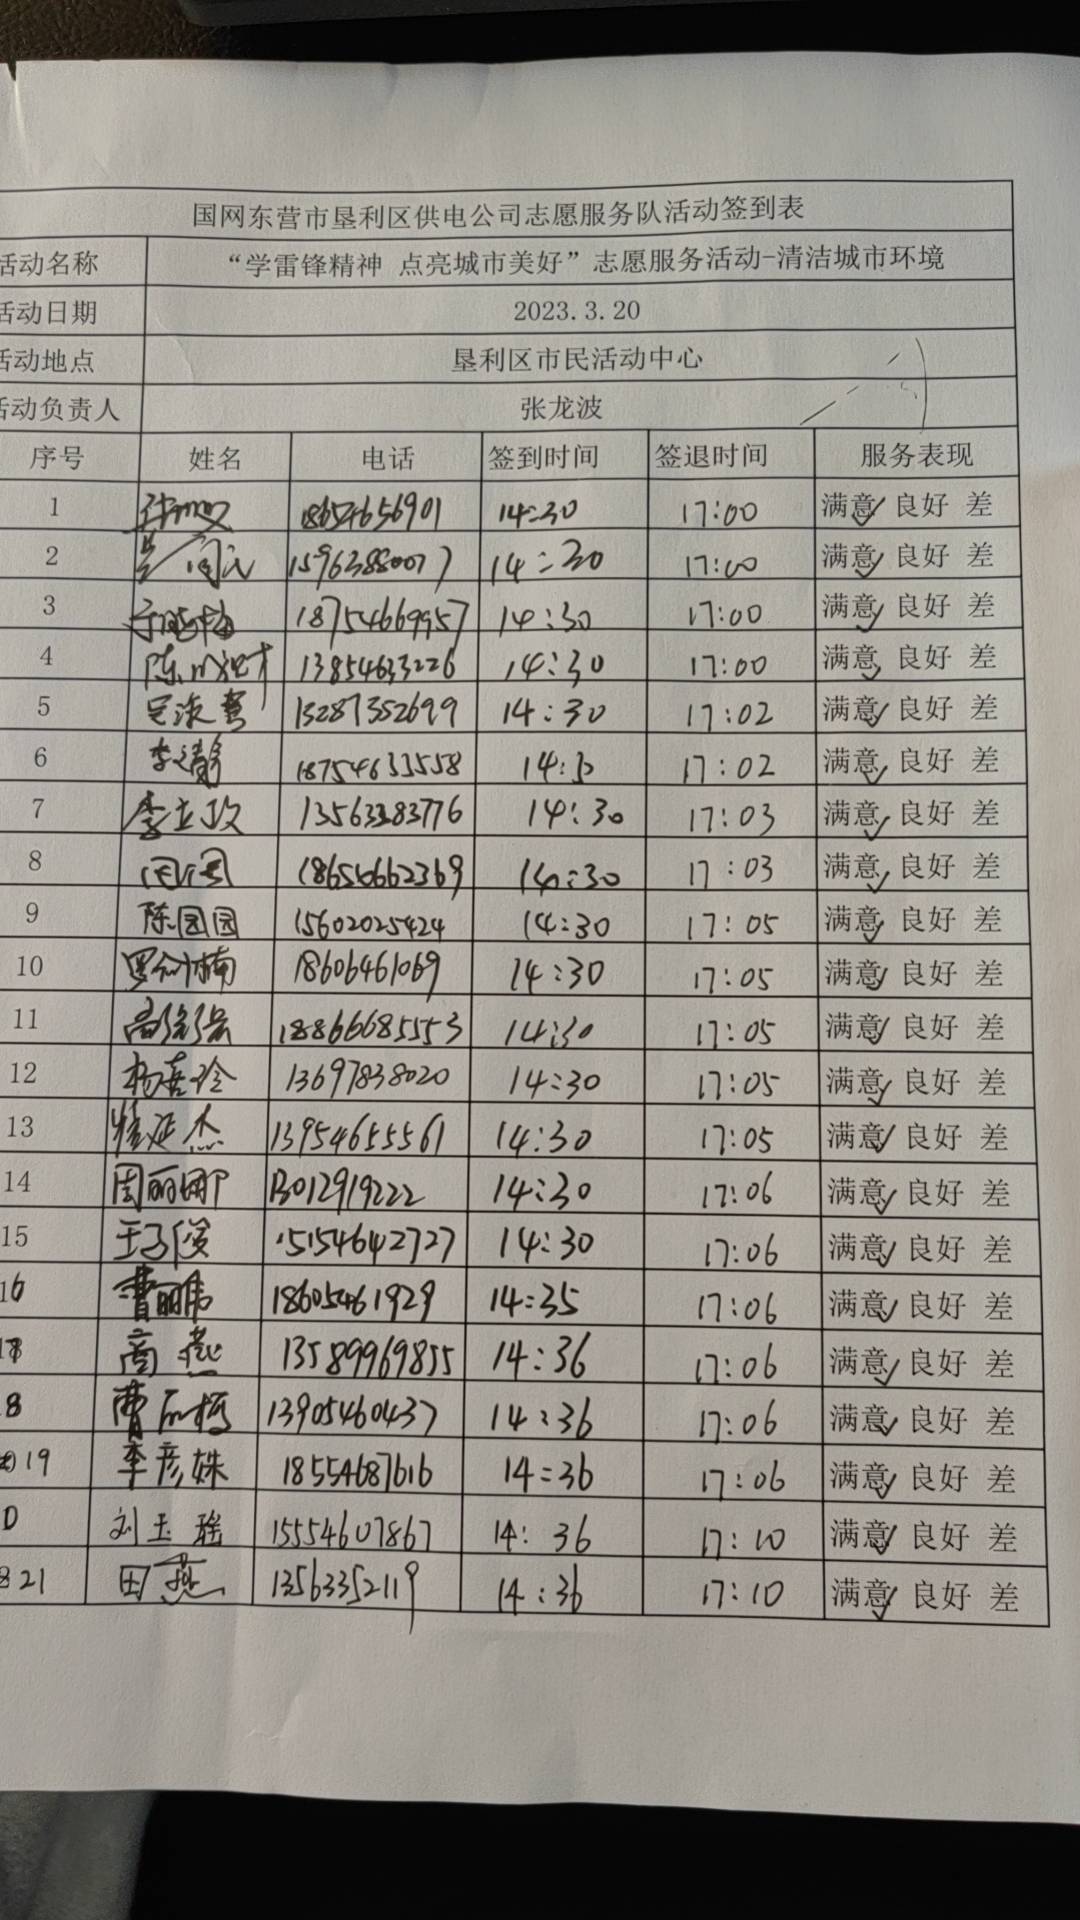 国网东营市垦利区供电公司志愿服务队活动签到表
活动名称 “学雷锋精神 点亮城市美好”志愿服务活动-清洁城市环境
活动日期 2023.3.20
活动地点 垦利区市民活动中心
活动负责人 张龙波
序号 姓名 电话 签到时间 签退时间 服务表现
1 18654656901 14:30 17:00 满意✓ 良好 差
2 15963880077 14:30 17:00 满意✓ 良好 差
3 于晓梅 18754669957 14:30 17:00 满意✓ 良好 差
4 陈 13854633226 14:30 17:00 满意✓ 良好 差
5 13287352699 14:30 17:02 满意✓ 良好 差
6 李文静 18754633558 14:30 17:02 满意✓ 良好 差
7 李立政 13563383776 14:30 17:03 满意✓ 良好 差
8 18654662369 14:30 17:03 满意✓ 良好 差
9 陈园园 15602025424 14:30 17:05 满意✓ 良好 差
10 罗 楠 18606461069 14:30 17:05 满意✓ 良好 差
11 高 18866685553 14:30 17:05 满意✓ 良好 差
12 杨喜玲 13697838020 14:30 17:05 满意✓ 良好 差
13 延杰 13954655561 14:30 17:05 满意✓ 良好 差
14 周丽娜 13012919222 14:30 17:06 满意✓ 良好 差
15 王子俊 15154642727 14:30 17:06 满意✓ 良好 差
16 曹 18605461929 14:35 17:06 满意✓ 良好 差
17 商燕 13589969855 14:36 17:06 满意✓ 良好 差
8 曹 梅 13905460437 14:36 17:06 满意✓ 良好 差
19 李彦姝 18554687616 14:36 17:06 满意✓ 良好 差
0 刘玉瑶 15554607867 14:36 17:10 满意✓ 良好 差
21 田燕 13563352119 14:36 17:10 满意✓ 良好 差